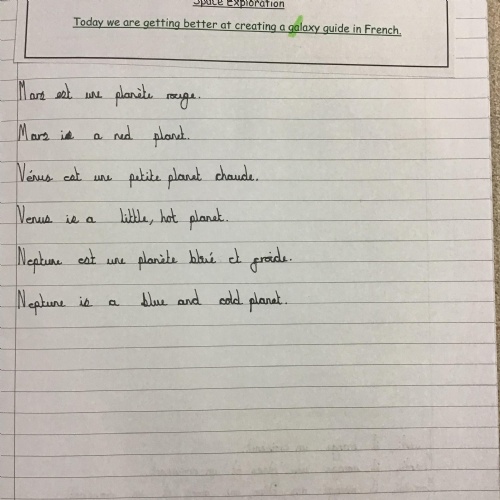 Space Exploration
Today we are getting better at creating a galaxy guide in French.
Mars est une planète rouge.
Mars is a red planet.
Vénus est une petite planet chaude.
Venus is a little, hot planet.
Neptune est une planète blué et froide.
Neptune is a blue and cold planet.